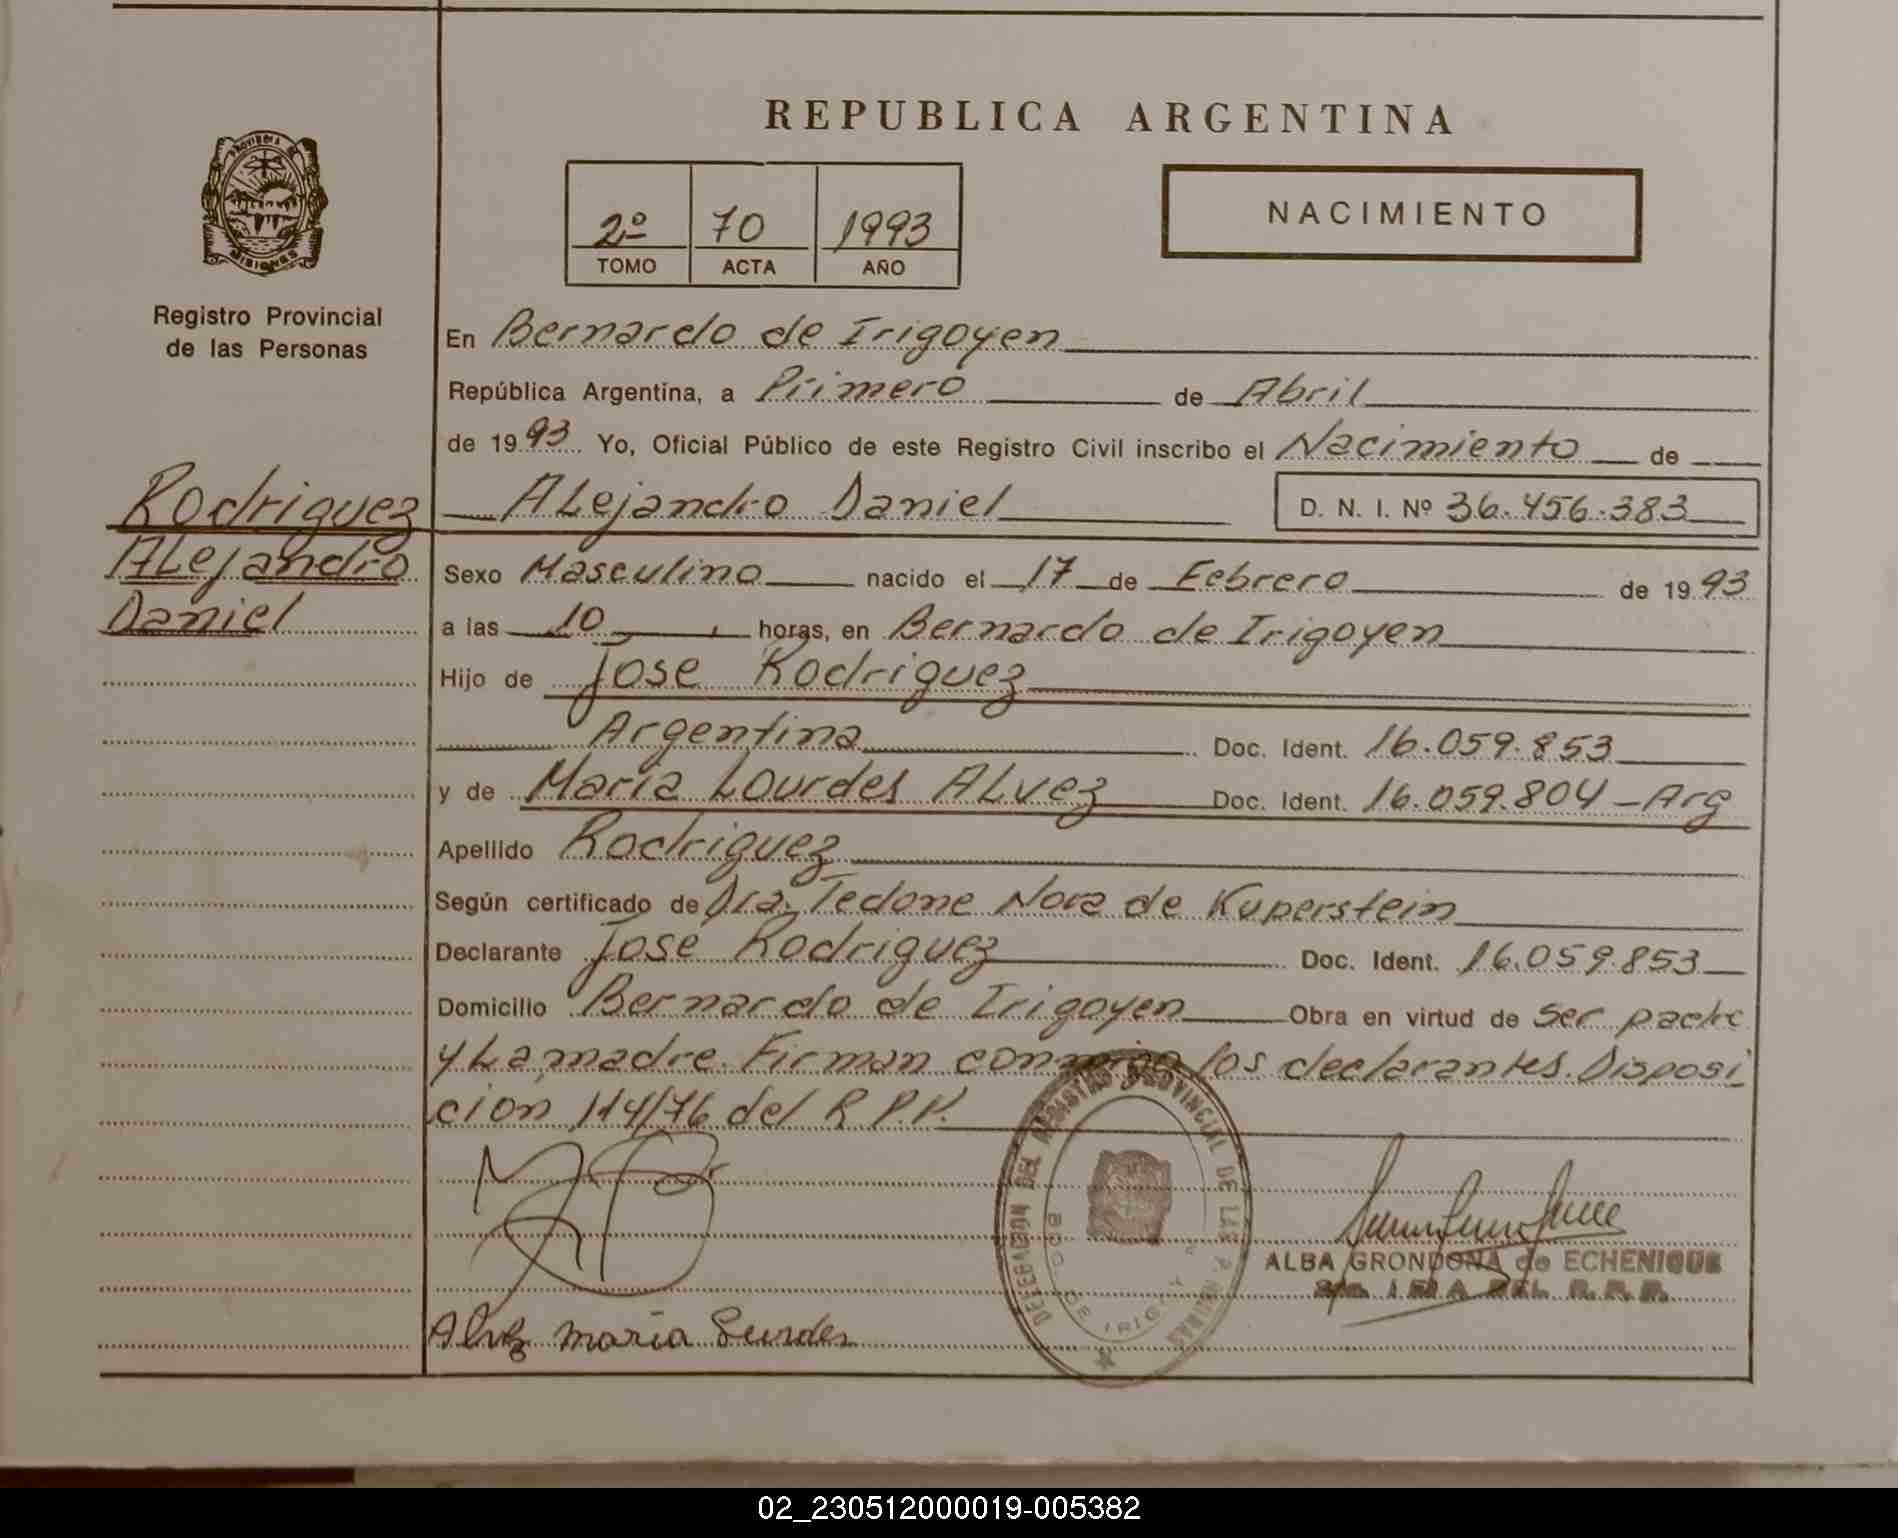 REPUBLICA ARGENTINA
PROVINCIA DE MISIONES
Registro Provincial
de las Personas
2º 70 1993
TOMO ACTA AÑO
NACIMIENTO
En Bernardo de Irigoyen
República Argentina, a Primero de Abril
de 1993 Yo, Oficial Público de este Registro Civil inscribo el Nacimiento de
Alejandro Daniel D. N. I. Nº 36.456.383
Rodriguez
Alejandro
Daniel
Sexo Masculino nacido el 17 de Febrero de 1993
a las 10 horas, en Bernardo de Irigoyen
Hijo de Jose Rodriguez
Argentina Doc. Ident. 16.059.853
y de Maria Lourdes Alvez Doc. Ident. 16.059.804 - Arg
Apellido Rodriguez
Según certificado de Dra. Tedone Nora de Kuperstein
Declarante Jose Rodriguez Doc. Ident. 16.059.853
Domicilio Bernardo de Irigoyen Obra en virtud de ser padre
y La madre. Firman conmigo los declarantes. Disposi
cion 114/76 del R.P.P.
DELEGACION DEL REGISTRO PROVINCIAL DE LAS PERSONAS
BDO. DE IRIGOYEN
ALBA GRONDONA de ECHENIQUE
DEL R. P. P.
Alvez maria Lurdes
02_230512000019-005382